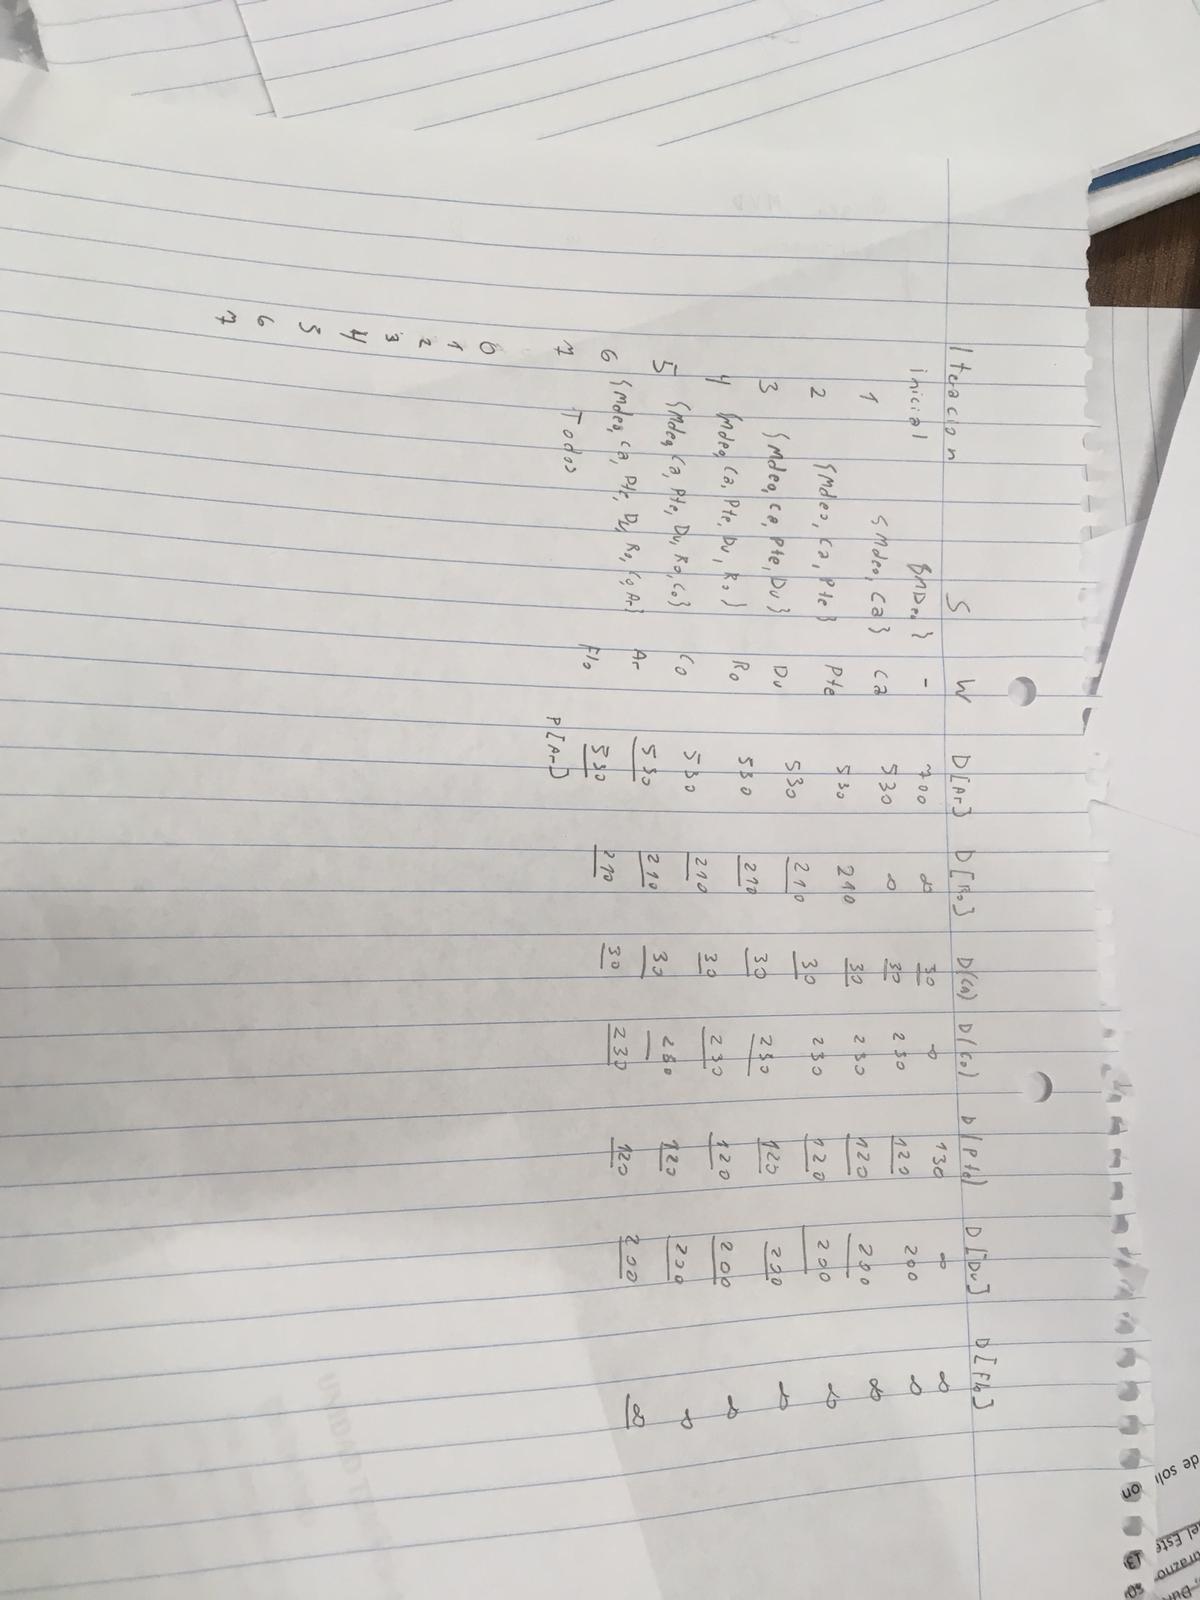 de soli
el Este
urazno
Dur
on
13
so
Iteracion S W D[Ar] D[Ro] D(Ca) D(Co) D(Pte) D[Du] D[Flo]
inicial {MDeo} - 700 ∞ 30 ∞ 130 ∞ ∞
1 {Mdeo, Ca} Ca 530 ∞ 30 230 120 200 ∞
2 {Mdeo, Ca, Pte} Pte 530 210 30 230 120 200 ∞
3 {Mdeo, Ca, Pte, Du} Du 530 210 30 230 120 200 ∞
4 {Mdeo, Ca, Pte, Du, Ro} Ro 530 210 30 230 120 200 ∞
5 {Mdeo, Ca, Pte, Du, Ro, Co} Co 530 210 30 230 120 200 ∞
6 {Mdeo, Ca, Pte, Du, Ro, Co, Ar} Ar 530 210 30 230 120 200 ∞
7 Todos Flo 530 210 30 230 120 200 ∞
P[Ar]
0
1
2
3
4
5
6
7